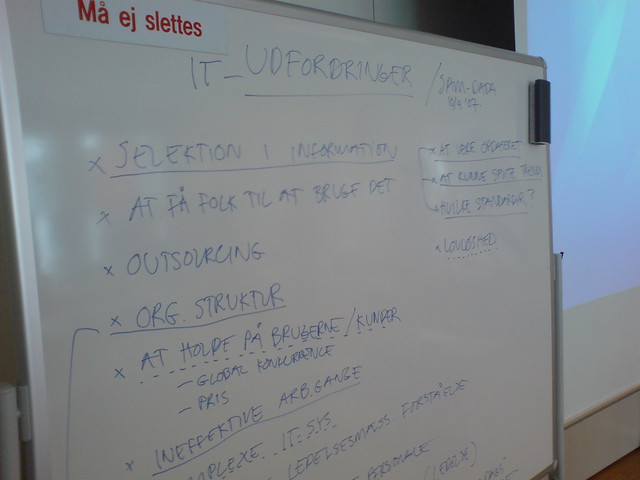 Må ej slettes
IT-UDFORDRINGER / SAM-DATA
x SELEKTION I INFORMATION
x AT FÅ FOLK TIL AT BRUGE DET
x OUTSOURCING
x ORG. STRUKTUR
x AT HOLDE PÅ BRUGERNE/KUNDER
– GLOBAL KONKURRENCE
– PRIS
x INEFFEKTIVE ARB.GANGE
IT-SYS
LEDELSESMÆSS FORSTÅELSE
PERSONALE (LEDELSE)
x AT VÆRE OPDATERET
AT KUNNE SPOTTE TRENDS
HVILKE STANDARDER?
x LOVLØSHED